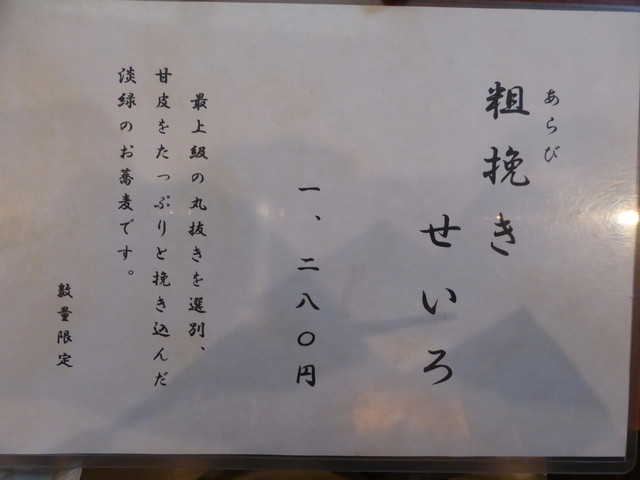 あらび
粗挽き
せいろ
一、二八〇円
最上級の丸抜きを選別、
甘皮をたっぷりと挽き込んだ
淡緑のお蕎麦です。
数量限定